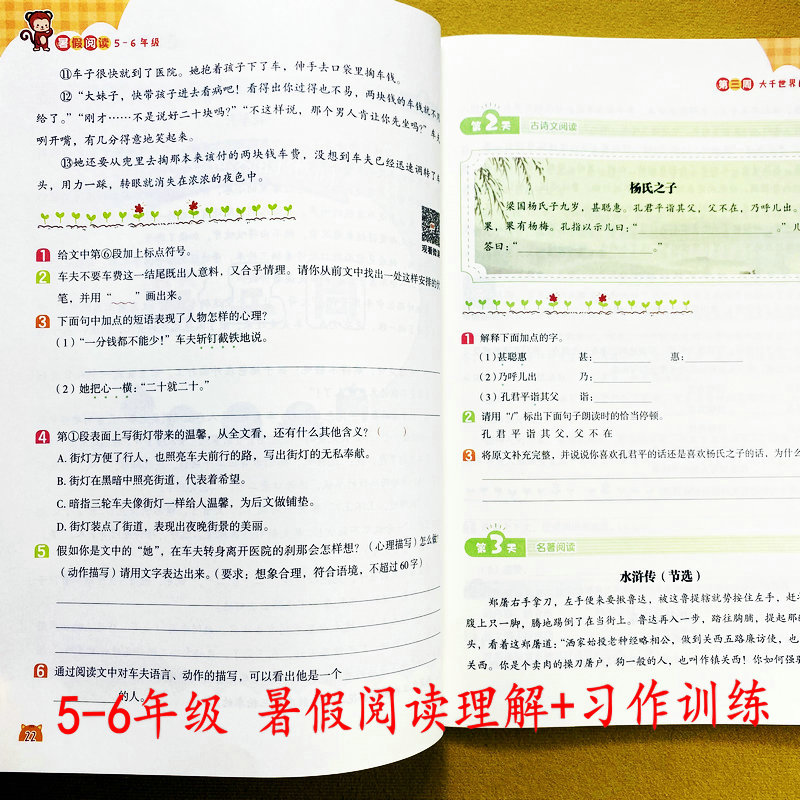 暑假阅读 5-6年级
⑪车子很快就到了医院。她抱着孩子下了车，伸手去口袋里掏车钱。
⑫“大妹子，快带孩子进去看病吧！看得出你过得也不易，两块钱的车钱就不用
给了。”“刚才……不是说好二十块吗？”“不这样说，那个男人肯让你先坐吗？”车夫
咧开嘴，有几分得意地笑起来。
⑬她还要从兜里去掏那本来该付的两块钱车费，没想到车夫已经迅速调转了车
头，用力一踩，转眼就消失在浓浓的夜色中。
观看微课
1 给文中第⑥段加上标点符号。
2 车夫不要车费这一结尾既出人意料，又合乎情理。请你从前文中找出一处这样安排的伏
笔，并用“﹏﹏”画出来。
3 下面句中加点的短语表现了人物怎样的心理？
（1）“一分钱都不能少！”车夫斩钉截铁地说。
（2）她把心一横：“二十就二十。”
4 第①段表面上写街灯带来的温馨，从全文看，还有什么其他含义？（ ）
A. 街灯方便了行人，也照亮车夫前行的路，写出街灯的无私奉献。
B. 街灯在黑暗中照亮街道，代表着希望。
C. 暗指三轮车夫像街灯一样给人温馨，为后文做铺垫。
D. 街灯装点了街道，表现出夜晚街景的美丽。
5 假如你是文中的“她”，在车夫转身离开医院的刹那会怎样想？（心理描写）怎么做？
（动作描写）请用文字表达出来。（要求：想象合理，符合语境，不超过60字）
6 通过阅读文中对车夫语言、动作的描写，可以看出他是一个
的人。
22
第三周 大千世界
第2天 古诗文阅读
杨氏之子
梁国杨氏子九岁，甚聪惠。孔君平诣其父，父不在，乃呼儿出。
果，果有杨梅。孔指以示儿曰：“ 。”儿
答曰：“ 。”
1 解释下面加点的字。
（1）甚聪惠 甚： 惠：
（2）乃呼儿出 乃：
（3）孔君平诣其父 诣：
2 请用“/”标出下面句子朗读时的恰当停顿。
孔 君 平 诣 其 父，父 不 在
3 将原文补充完整，并说说你喜欢孔君平的话还是喜欢杨氏之子的话，为什么
第3天 名著阅读
水浒传（节选）
郑屠右手拿刀，左手便来要揪鲁达，被这鲁提辖就势按住左手，赶
腹上只一脚，腾地踢倒了在当街上。鲁达再入一步，踏住胸脯，提起那
头，看着这郑屠道：“洒家始投老种经略相公，做到关西五路廉访使，也
关西。你是个卖肉的操刀屠户，狗一般的人，也叫作镇关西！你如何强
5-6年级 暑假阅读理解+习作训练